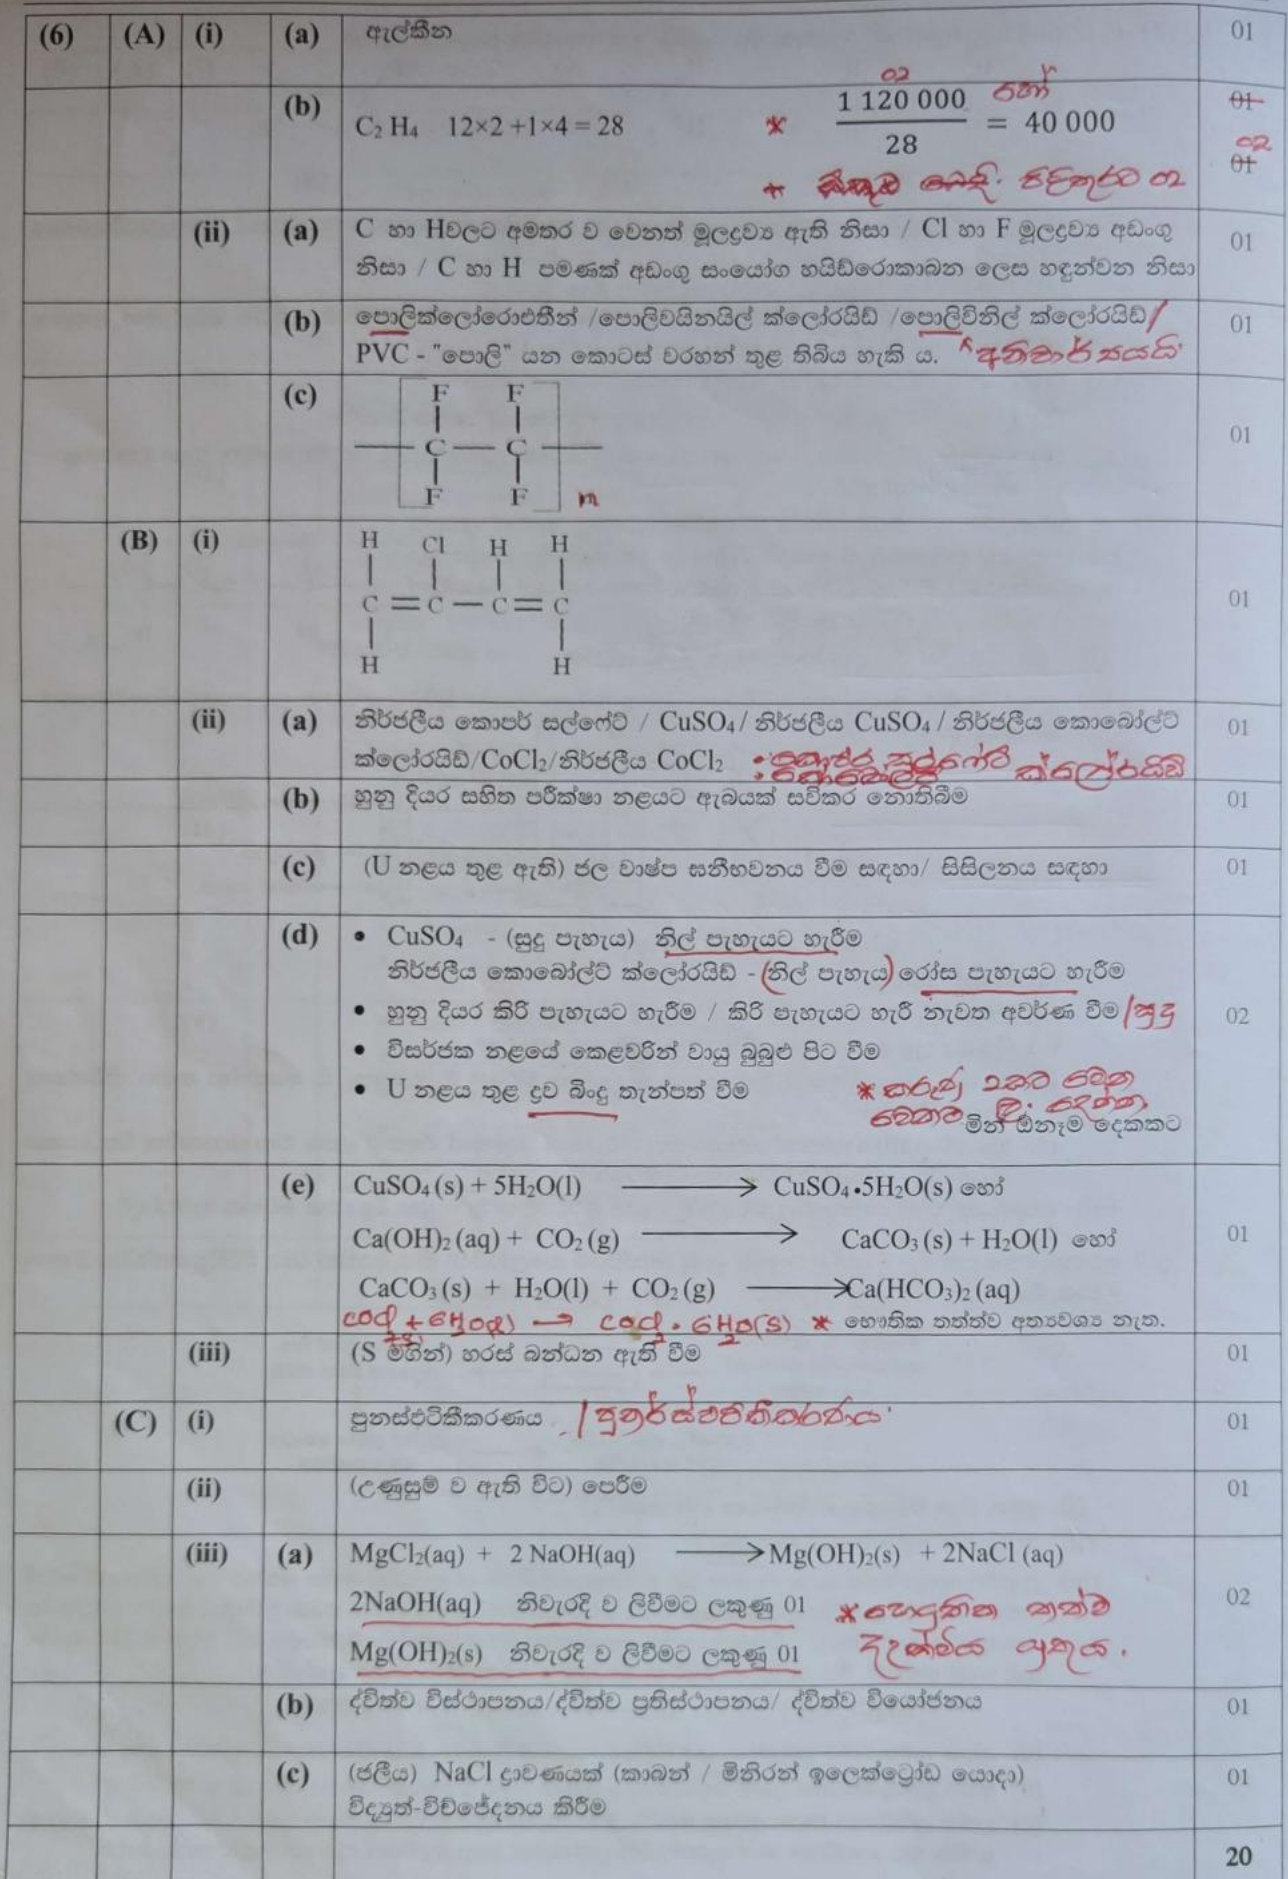 (6) (A) (i) (a) ඇල්කීන 01
02 හෝ
(b) C₂ H₄ 12×2 +1×4 = 28 * 1 120 000 / 28 = 40 000 01 02 01
* පිළිතුරට 02
(ii) (a) C හා Hවලට අමතර ව වෙනත් මූලද්‍රව්‍ය ඇති නිසා / Cl හා F මූලද්‍රව්‍ය අඩංගු 01
නිසා / C හා H පමණක් අඩංගු සංයෝග හයිඩ්රොකාබන ලෙස හඳුන්වන නිසා
(b) පොලික්ලෝරොඑතීන් /පොලිවයිනයිල් ක්ලෝරයිඩ් /පොලිවිනිල් ක්ලෝරයිඩ්/ 01
PVC - "පොලි" යන කොටස් වරහන් තුළ තිබිය හැකි ය. අනිවාර්යයයි
(c) F F
C — C 01
F F n
(B) (i) H Cl H H
C = C — C = C 01
H H
(ii) (a) නිර්ජලීය කොපර් සල්ෆේට් / CuSO₄ / නිර්ජලීය CuSO₄ / නිර්ජලීය කොබෝල්ට් 01
ක්ලෝරයිඩ්/CoCl₂/නිර්ජලීය CoCl₂ කොපර් සල්ෆේට් ක්ලෝරයිඩ්
කොබෝල්ට්
(b) හුනු දියර සහිත පරීක්ෂා නළයට ඇබයක් සවිකර නොතිබීම 01
(c) (U නළය තුළ ඇති) ජල වාෂ්ප ඝනීභවනය වීම සඳහා/ සිසිලනය සඳහා 01
(d) • CuSO₄ - (සුදු පැහැය) නිල් පැහැයට හැරීම
නිර්ජලීය කොබෝල්ට් ක්ලෝරයිඩ් - (නිල් පැහැය) රෝස පැහැයට හැරීම
• හුනු දියර කිරි පැහැයට හැරීම / කිරි පැහැයට හැරී නැවත අවර්ණ වීම /සුදු 02
• විසර්ජක නළයේ කෙළවරින් වායු බුබුළු පිට වීම
• U නළය තුළ ද්‍රව බිංදු තැන්පත් වීම * කරුණු 2කට වෙන
වෙනම ල. දෙන්න.
මින් ඕනෑම දෙකකට
(e) CuSO₄ (s) + 5H₂O(l) ⟶ CuSO₄•5H₂O(s) හෝ
Ca(OH)₂ (aq) + CO₂ (g) ⟶ CaCO₃ (s) + H₂O(l) හෝ 01
CaCO₃ (s) + H₂O(l) + CO₂ (g) ⟶ Ca(HCO₃)₂ (aq)
COCl₂ + 6H₂O(l) → COCl₂ . 6H₂O(s) * භෞතික තත්ත්ව අත්‍යවශ්‍ය නැත.
(iii) (S මගින්) හරස් බන්ධන ඇති වීම 01
(C) (i) පුනස්ඵටිකීකරණය / පුනර්ස්ඵටිකීකරණය 01
(ii) (උණුසුම් ව ඇති විට) පෙරීම 01
(iii) (a) MgCl₂(aq) + 2 NaOH(aq) ⟶ Mg(OH)₂(s) + 2NaCl (aq)
2NaOH(aq) නිවැරදි ව ලිවීමට ලකුණු 01 * භෞතික තත්ව 02
Mg(OH)₂(s) නිවැරදි ව ලිවීමට ලකුණු 01 දැක්විය යුතුය.
(b) ද්විත්ව විස්ථාපනය/ද්විත්ව ප්‍රතිස්ථාපනය/ ද්විත්ව වියෝජනය 01
(c) (ජලීය) NaCl ද්‍රාවණයක් (කාබන් / මිනිරන් ඉලෙක්ට්‍රෝඩ යොදා) 01
විද්‍යුත්-විච්ඡේදනය කිරීම
20